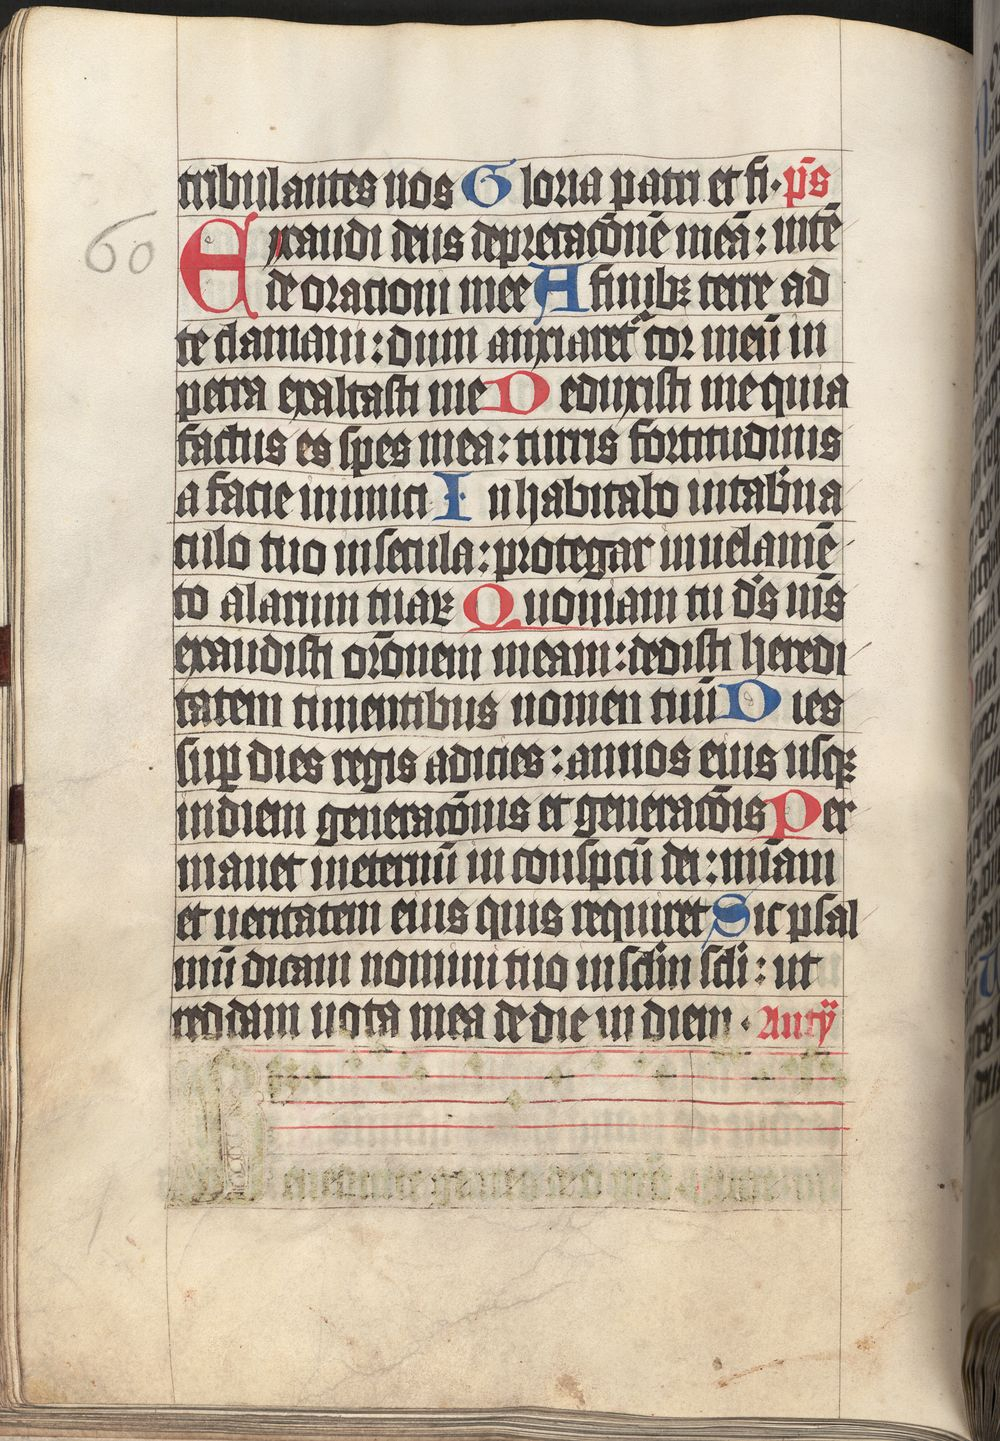 tribulantes nos Gloria patri et fi. p̄s
60
Exaudi deus deprecac̄onē meā: intē
de orationi mee A finibꝫ terre ad
te clamaui: dum anxiaret᷑ cor meū in
petra exaltasti me Deduxisti me quia
factus es spes mea: turris fortitudinis
a facie inimici Inhabitabo in tab̄na
culo tuo in secula: protegar in uelamē
to alarum tuaꝝ Quoniam tu ds̄ ms̄
exaudisti or̄onem meam: dedisti heredi
tatem timentibus nomen tuū Dies
suꝑ dies regis adicies: annos eius usqꝫ
in diem generac̄onis et generac̄ois Per
manet in eternū in conspc̄tū dei: mīam
et ueritatem eius quis requiret Sic psal
mū dicam nomini tuo in sclm̄ scli: ut
reddam uota mea de die in diem. Anty̅